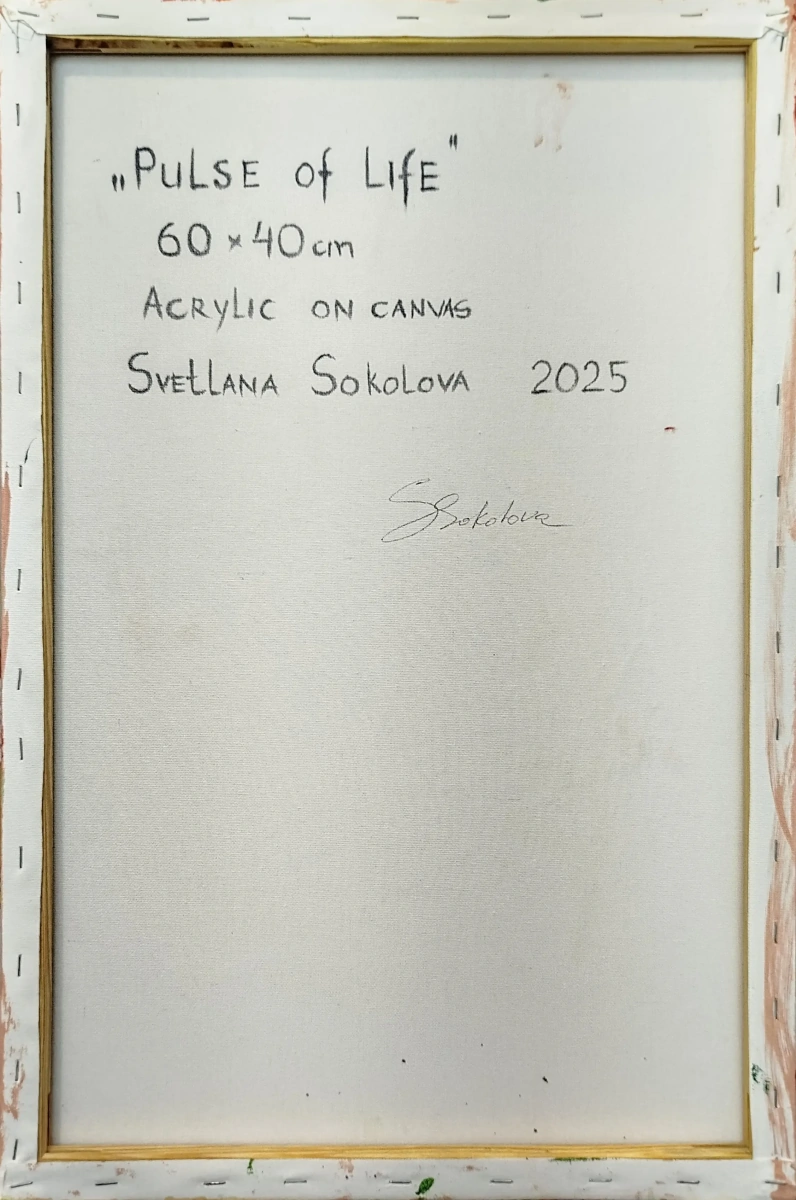 „Pulse of Life"
60 × 40 cm
Acrylic on canvas
Svetlana Sokolova 2025
SSokolova